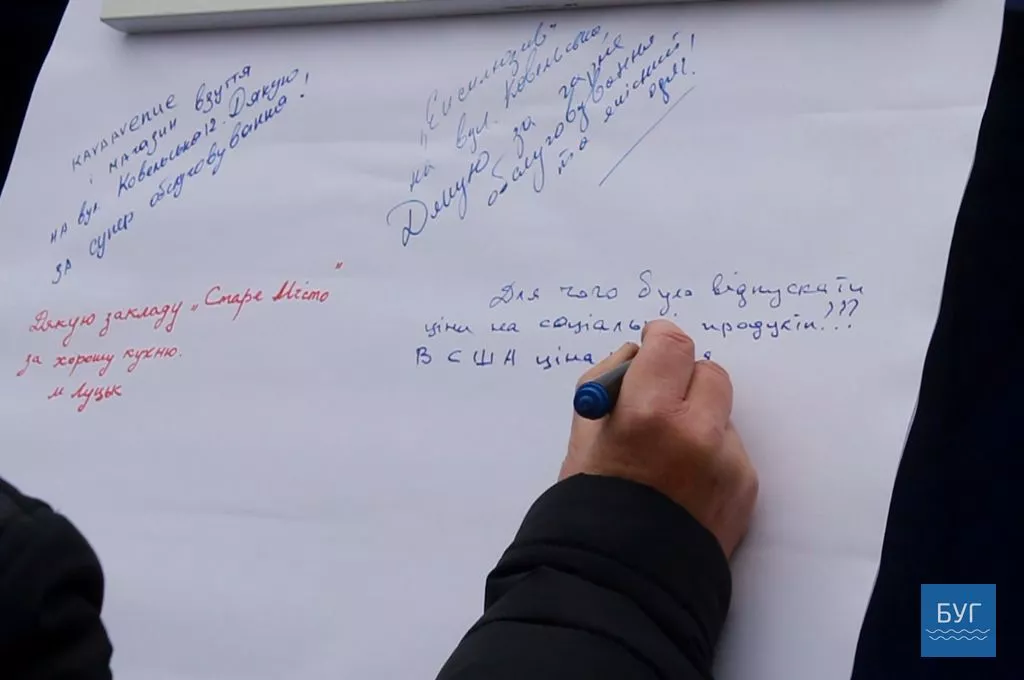 і магазин взуття
на вул. Ковельська 12. Дякую
за супер обслуговування!
"Ексклюзив"
на вул. Ковельська,
Дякую за гарне
обслуговування
та якісний
одяг!
Дякую закладу „Старе Місто"
за хорошу кухню.
м Луцьк
Для чого було відпускати
ціни на соціальні продукти!???
В США ціна
БУГ